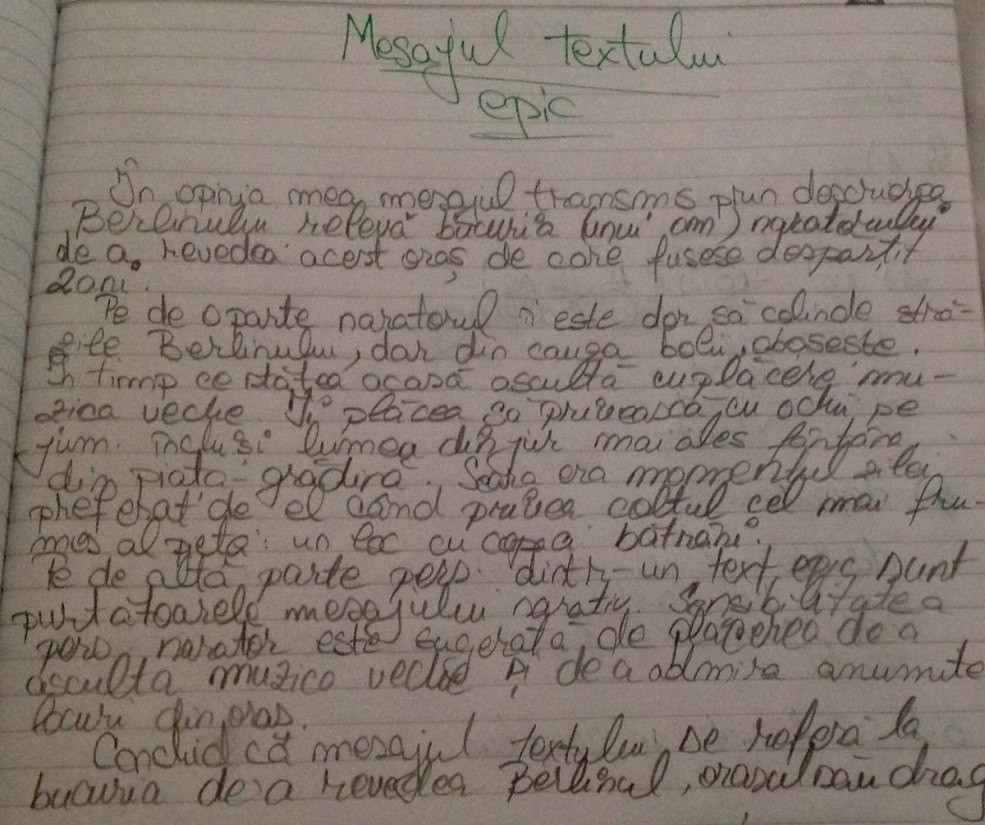 Mesajul textului
epic
În opinia mea mesajul transms prin descrierea
Berlinului relevă bucuria unui om
de a revedea acest oraș de care fusese despărțit
2 ani.
Pe de o parte naratorul îi este dor să colinde stră-
zile Berlinului, dar din cauza bolii, obosește.
În timp ce stătea acasă ascultă cu plăcere mu-
zica veche. Îi plăcea să privească, cu ochii pe
jum. incluși lumea din jur mai ales fântâna
din piața-grădină. Seara era momentul zilei
preferat de el când privea colțul cel mai fru-
mos al pieței: un loc cu copaci bătrâni.
Pe de altă parte pers. dintr-un text epic sunt
purtătoarele mesajului narativ. Sensibilitatea
pers. narator este sugerată de plăcerea de a
asculta muzica veche și de a admira anumite
locuri din oraș.
Conclud că mesajul textului se referă la
bucuria de a revedea Berlinul, orașul său drag